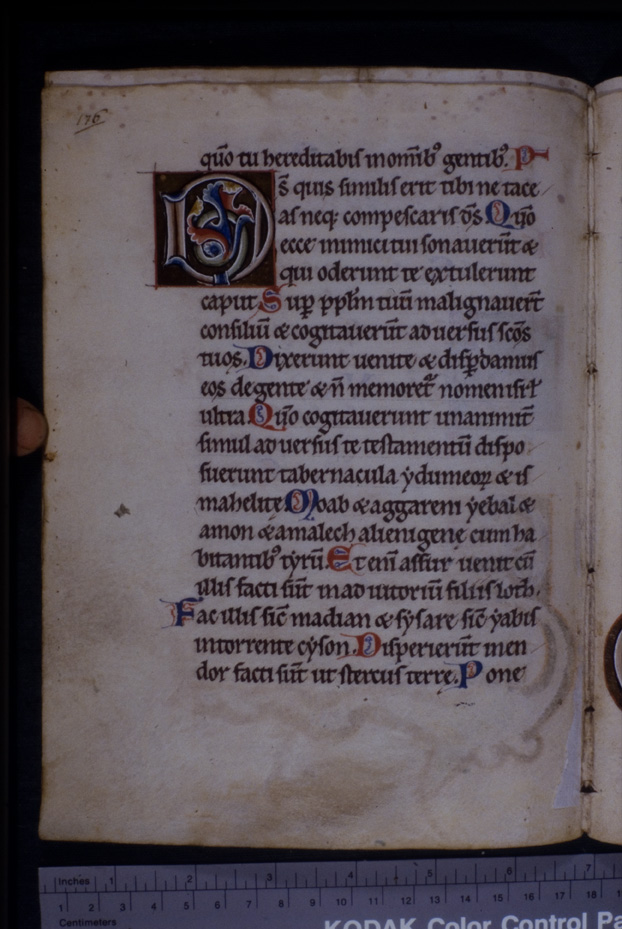 176
quo̅ tu hereditabis in om̅ib⁹ gentib⁹. P
D s̅ quis similis erit tibi ne tace
as neq; compescaris d̅s Quo̅
ecce inimici tui sonaueru̅t &
qui oderunt te extulerunt
caput Sup̱ pp̱lm̅ tuu̅ malignauer̅t
consiliu̅ & cogitaueru̅t aduersus sc̅os
tuos. Dixerunt uenite & disp̱damus
eos de gente & n̅ memoret᷑ nomen isrl̅
ultra. Quo̅ cogitauerunt unanimit̅
simul aduersus te testamentu̅ dispo
suerunt tabernacula ydumeoꝝ & is
mahelite Moab & aggareni yebal &
amon & amalech alienigene cum ha
bitantib⁹ tyru̅. Et eni̅ assur uenit cu̅
illis facti su̅t in adiutoriu̅ filiis loth.
Fac illis sic̅ madian & sysare sic̅ yabis
in torrente cyson. Disperieru̅t in en
dor facti su̅t ut stercus terre. Pone
Inches 1 2 3 4 5 6 7
1 2 3 4 5 6 7 8 9 10 11 12 13 14 15 16 17 18
Centimeters
KODAK Color Control Pa